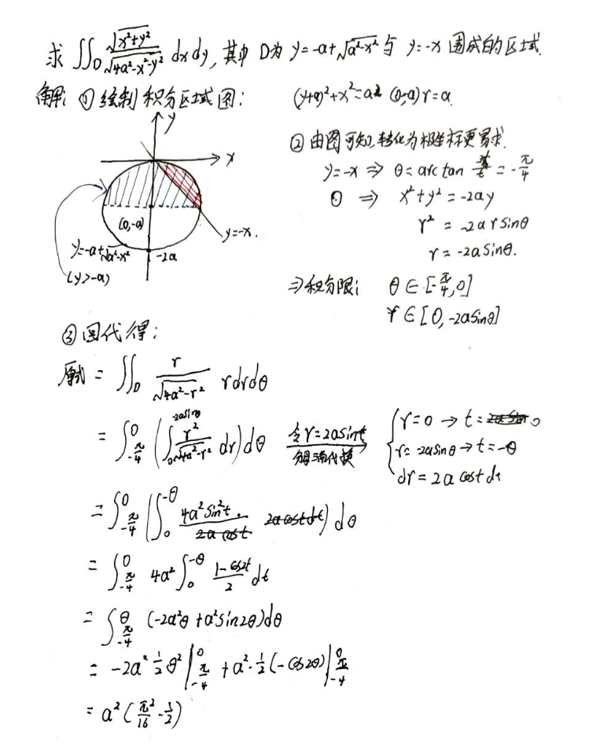 求 ∬_D √(x²+y²) / √(4a²-x²-y²) dxdy, 其中 D为 y=-a+√(a²-x²) 与 y=-x 围成的区域.
解: ① 绘制积分区域图: (y+a)²+x²=a² (0,-a) r=a.
y
x
(0,-a)
y=-x.
y=-a+√(a²-x²)
(y>-a)
-2a
② 由图可知, 转化为极坐标更易求.
y=-x ⇒ θ=arctan = -π/4
① ⇒ x²+y² = -2ay
r² = -2arsinθ
r = -2asinθ.
⇒ 积分限: θ∈[-π/4, 0]
r∈[0, -2asinθ]
③ 回代得:
原式 = ∬_D r/√(4a²-r²) rdrdθ
= ∫_{-π/4}^{0} (∫_0^{-2asinθ} r²/√(4a²-r²) dr) dθ 令r=2asint 三角代换
{ r=0 → t=0
r=-2asinθ → t=-θ
dr=2acostdt
= ∫_{-π/4}^{0} (∫_0^{-θ} 4a²sin²t/(2acost) · 2acostdt) dθ
= ∫_{-π/4}^{0} 4a² ∫_0^{-θ} (1-cos2t)/2 dt
= ∫_{-π/4}^{0} (-2a²θ + a²sin2θ)dθ
= -2a² ½θ² |_{-π/4}^{0} + a²·½(-cos2θ)|_{-π/4}^{0}
= a²(π²/16 - ½)